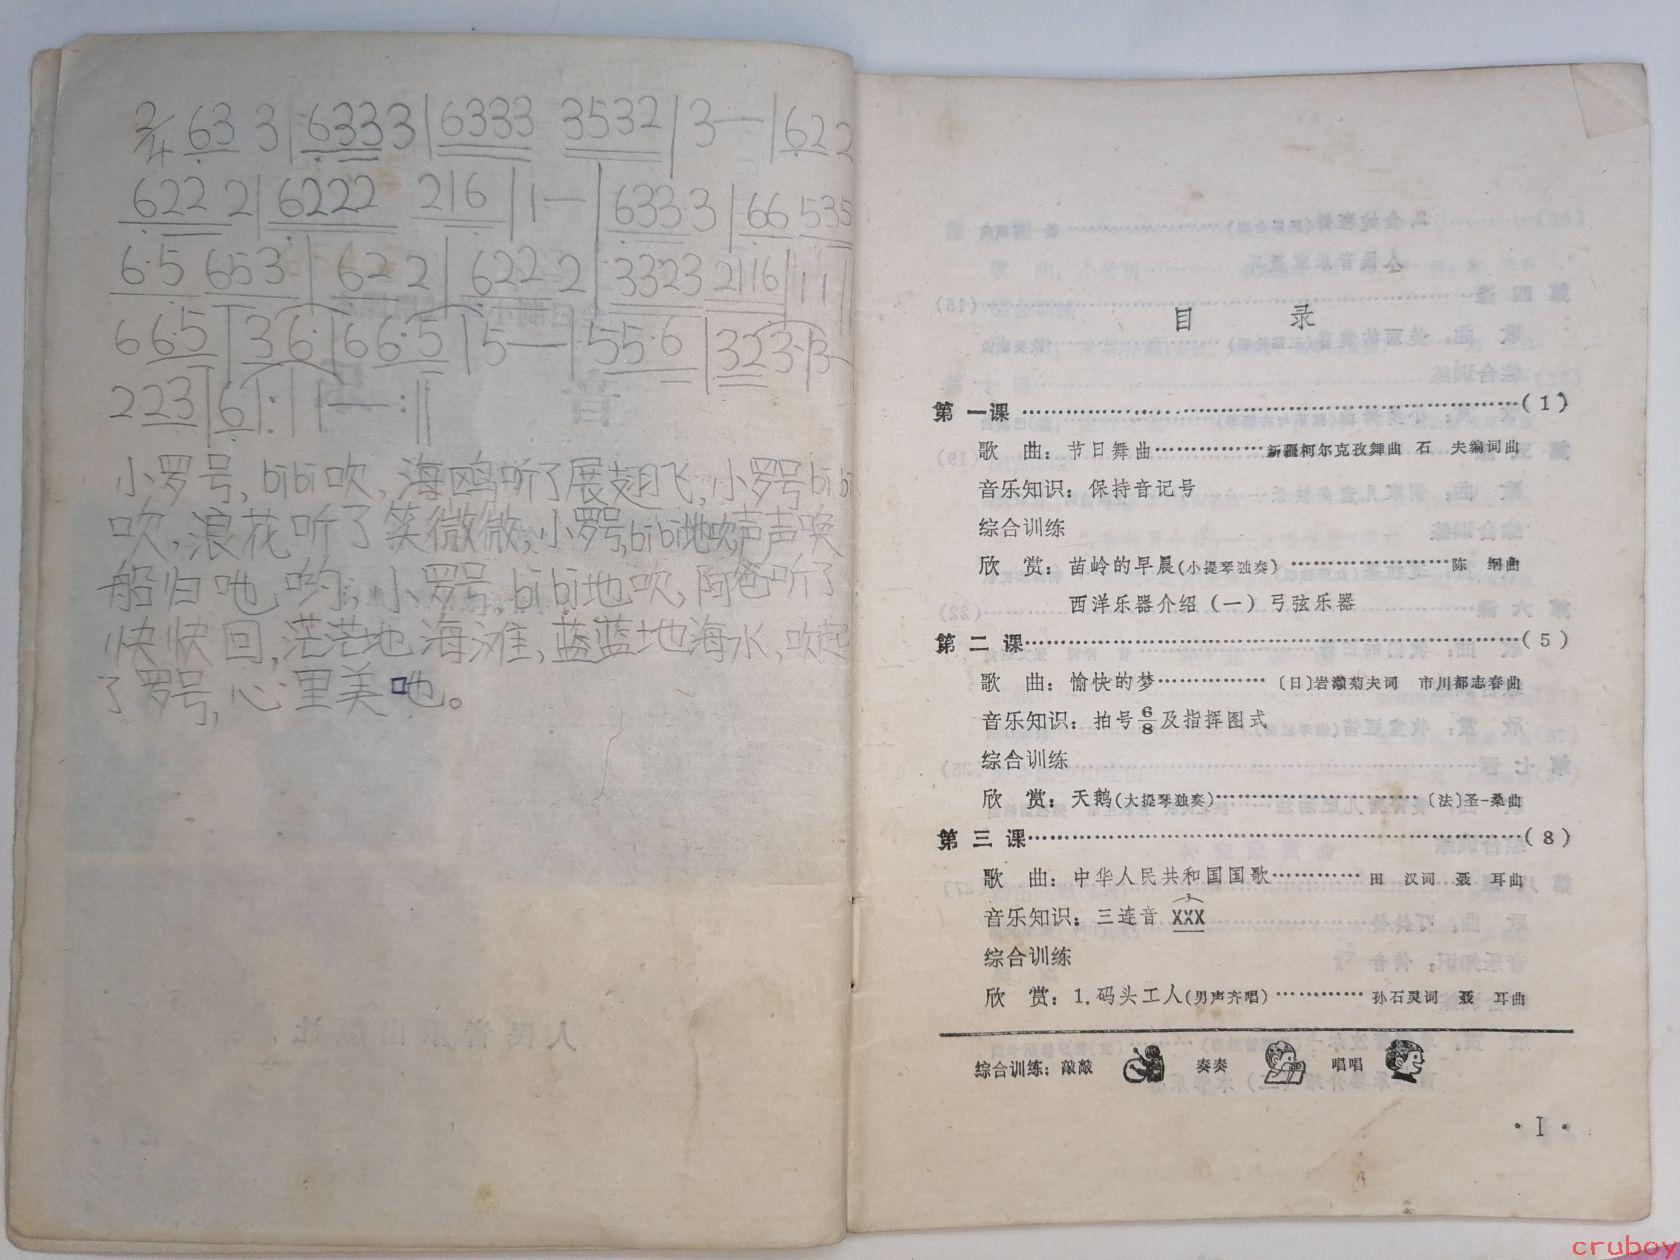 2/4 63 3 | 6333 | 6333 3532 | 3— | 62 2
622 2 | 6222 216 | 1— | 633·3 | 66 535
6·5 653 | 62 2 | 622·2 | 3323 2116 | 1 1 |
6 6·5 | 3 6· | 6 6·5 | 5— | 55·6 | 323· | 3—
2 23 | 6 |: 1—:‖
小罗号,bibi吹,海鸥听了展翅飞,小罗号bibi
吹,浪花听了笑微微,小罗号,bibi地吹,声声唤
船归吔哟,小罗号,bibi地吹,阿爸听了
快快回,茫茫地海滩,蓝蓝地海水,吹起
了罗号,心里美吔。
目 录
第一课……………(1)
歌 曲:节日舞曲……………新疆柯尔克孜舞曲 石 夫编词曲
音乐知识:保持音记号
综合训练
欣 赏:苗岭的早晨(小提琴独奏)……………陈 纲曲
西洋乐器介绍(一)弓弦乐器
第二课……………(5)
歌 曲:愉快的梦……………〔日〕岩瀬菊夫词 市川都志春曲
音乐知识:拍号6/8及指挥图式
综合训练
欣 赏:天鹅(大提琴独奏)……………〔法〕圣-桑曲
第三课……………(8)
歌 曲:中华人民共和国国歌……………田 汉词 聂 耳曲
音乐知识:三连音 3 XXX
综合训练
欣 赏:1.码头工人(男声齐唱)……………孙石灵词 聂 耳曲
综合训练:敲敲 奏奏 唱唱
·I·
cruboy